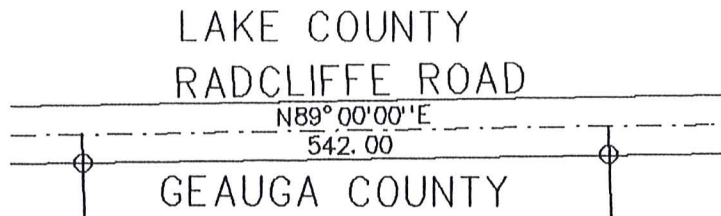 LAKE COUNTY
RADCLIFFE ROAD
N89°00'00''E
542.00
GEAUGA COUNTY